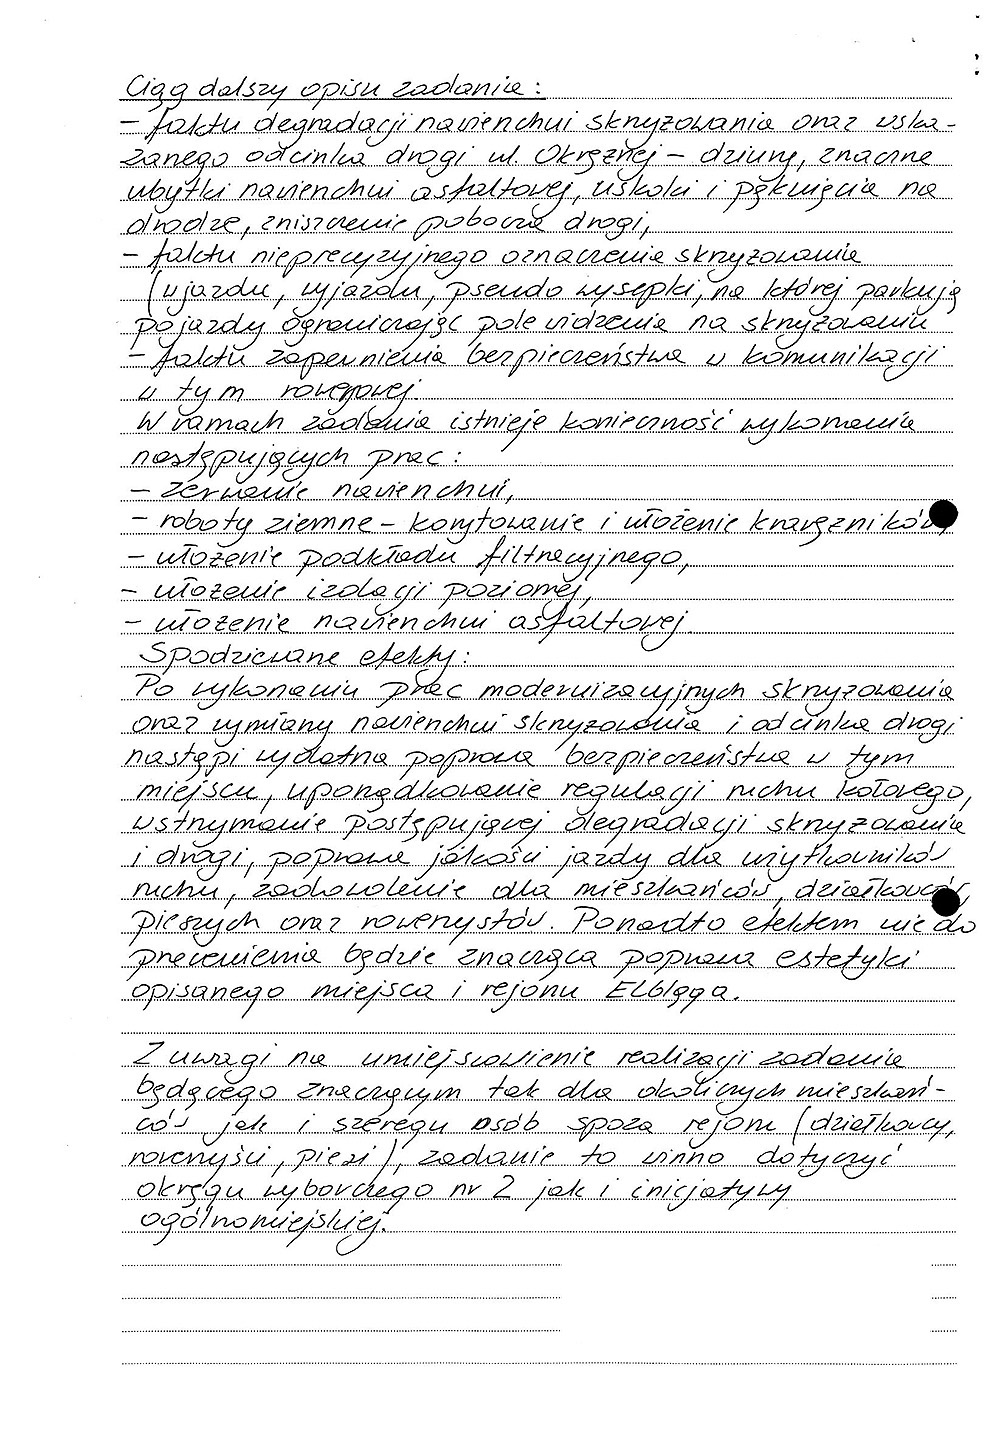 Ciąg dalszy opisu zadania:
– faktu degradacji nawierzchni skrzyżowania oraz wska-
zanego odcinka drogi ul. Okrężnej – dziury, znaczne
ubytki nawierzchni asfaltowej, uskoki i pęknięcia na
drodze, zniszczenie pobocza drogi,
– faktu nieprecyzyjnego oznaczenia skrzyżowania
(wjazdu, wyjazdu, pseudo wysepki, na której parkują
pojazdy ograniczając pole widzenia na skrzyżowaniu
– faktu zapewnienia bezpieczeństwa w komunikacji
w tym rowerowej.
W ramach zadania istnieje konieczność wykonania
następujących prac:
– zerwanie nawierzchni,
– roboty ziemne – korytowanie i ułożenie krawężników,
– ułożenie podkładu filtracyjnego,
– ułożenie izolacji poziomej,
– ułożenie nawierzchni asfaltowej.
Spodziewane efekty:
Po wykonaniu prac modernizacyjnych skrzyżowania
oraz wymiany nawierzchni skrzyżowania i odcinka drogi
nastąpi wydatna poprawa bezpieczeństwa w tym
miejscu, uporządkowanie regulacji ruchu kołowego,
wstrzymanie postępującej degradacji skrzyżowania
i drogi, poprawa jakości jazdy dla użytkowników
ruchu, zadowolenie dla mieszkańców, działkowców,
pieszych oraz rowerzystów. Ponadto efektem nie do
przecenienia będzie znacząca poprawa estetyki
opisanego miejsca i rejonu Elbląga.
Z uwagi na umiejscowienie realizacji zadania
będącego znaczącym tak dla okolicznych mieszkań-
ców jak i szeregu osób spoza rejonu (działkowcy,
rowerzyści, piesi), zadanie to winno dotyczyć
okręgu wyborczego nr 2 jak i inicjatywy
ogólnomiejskiej.